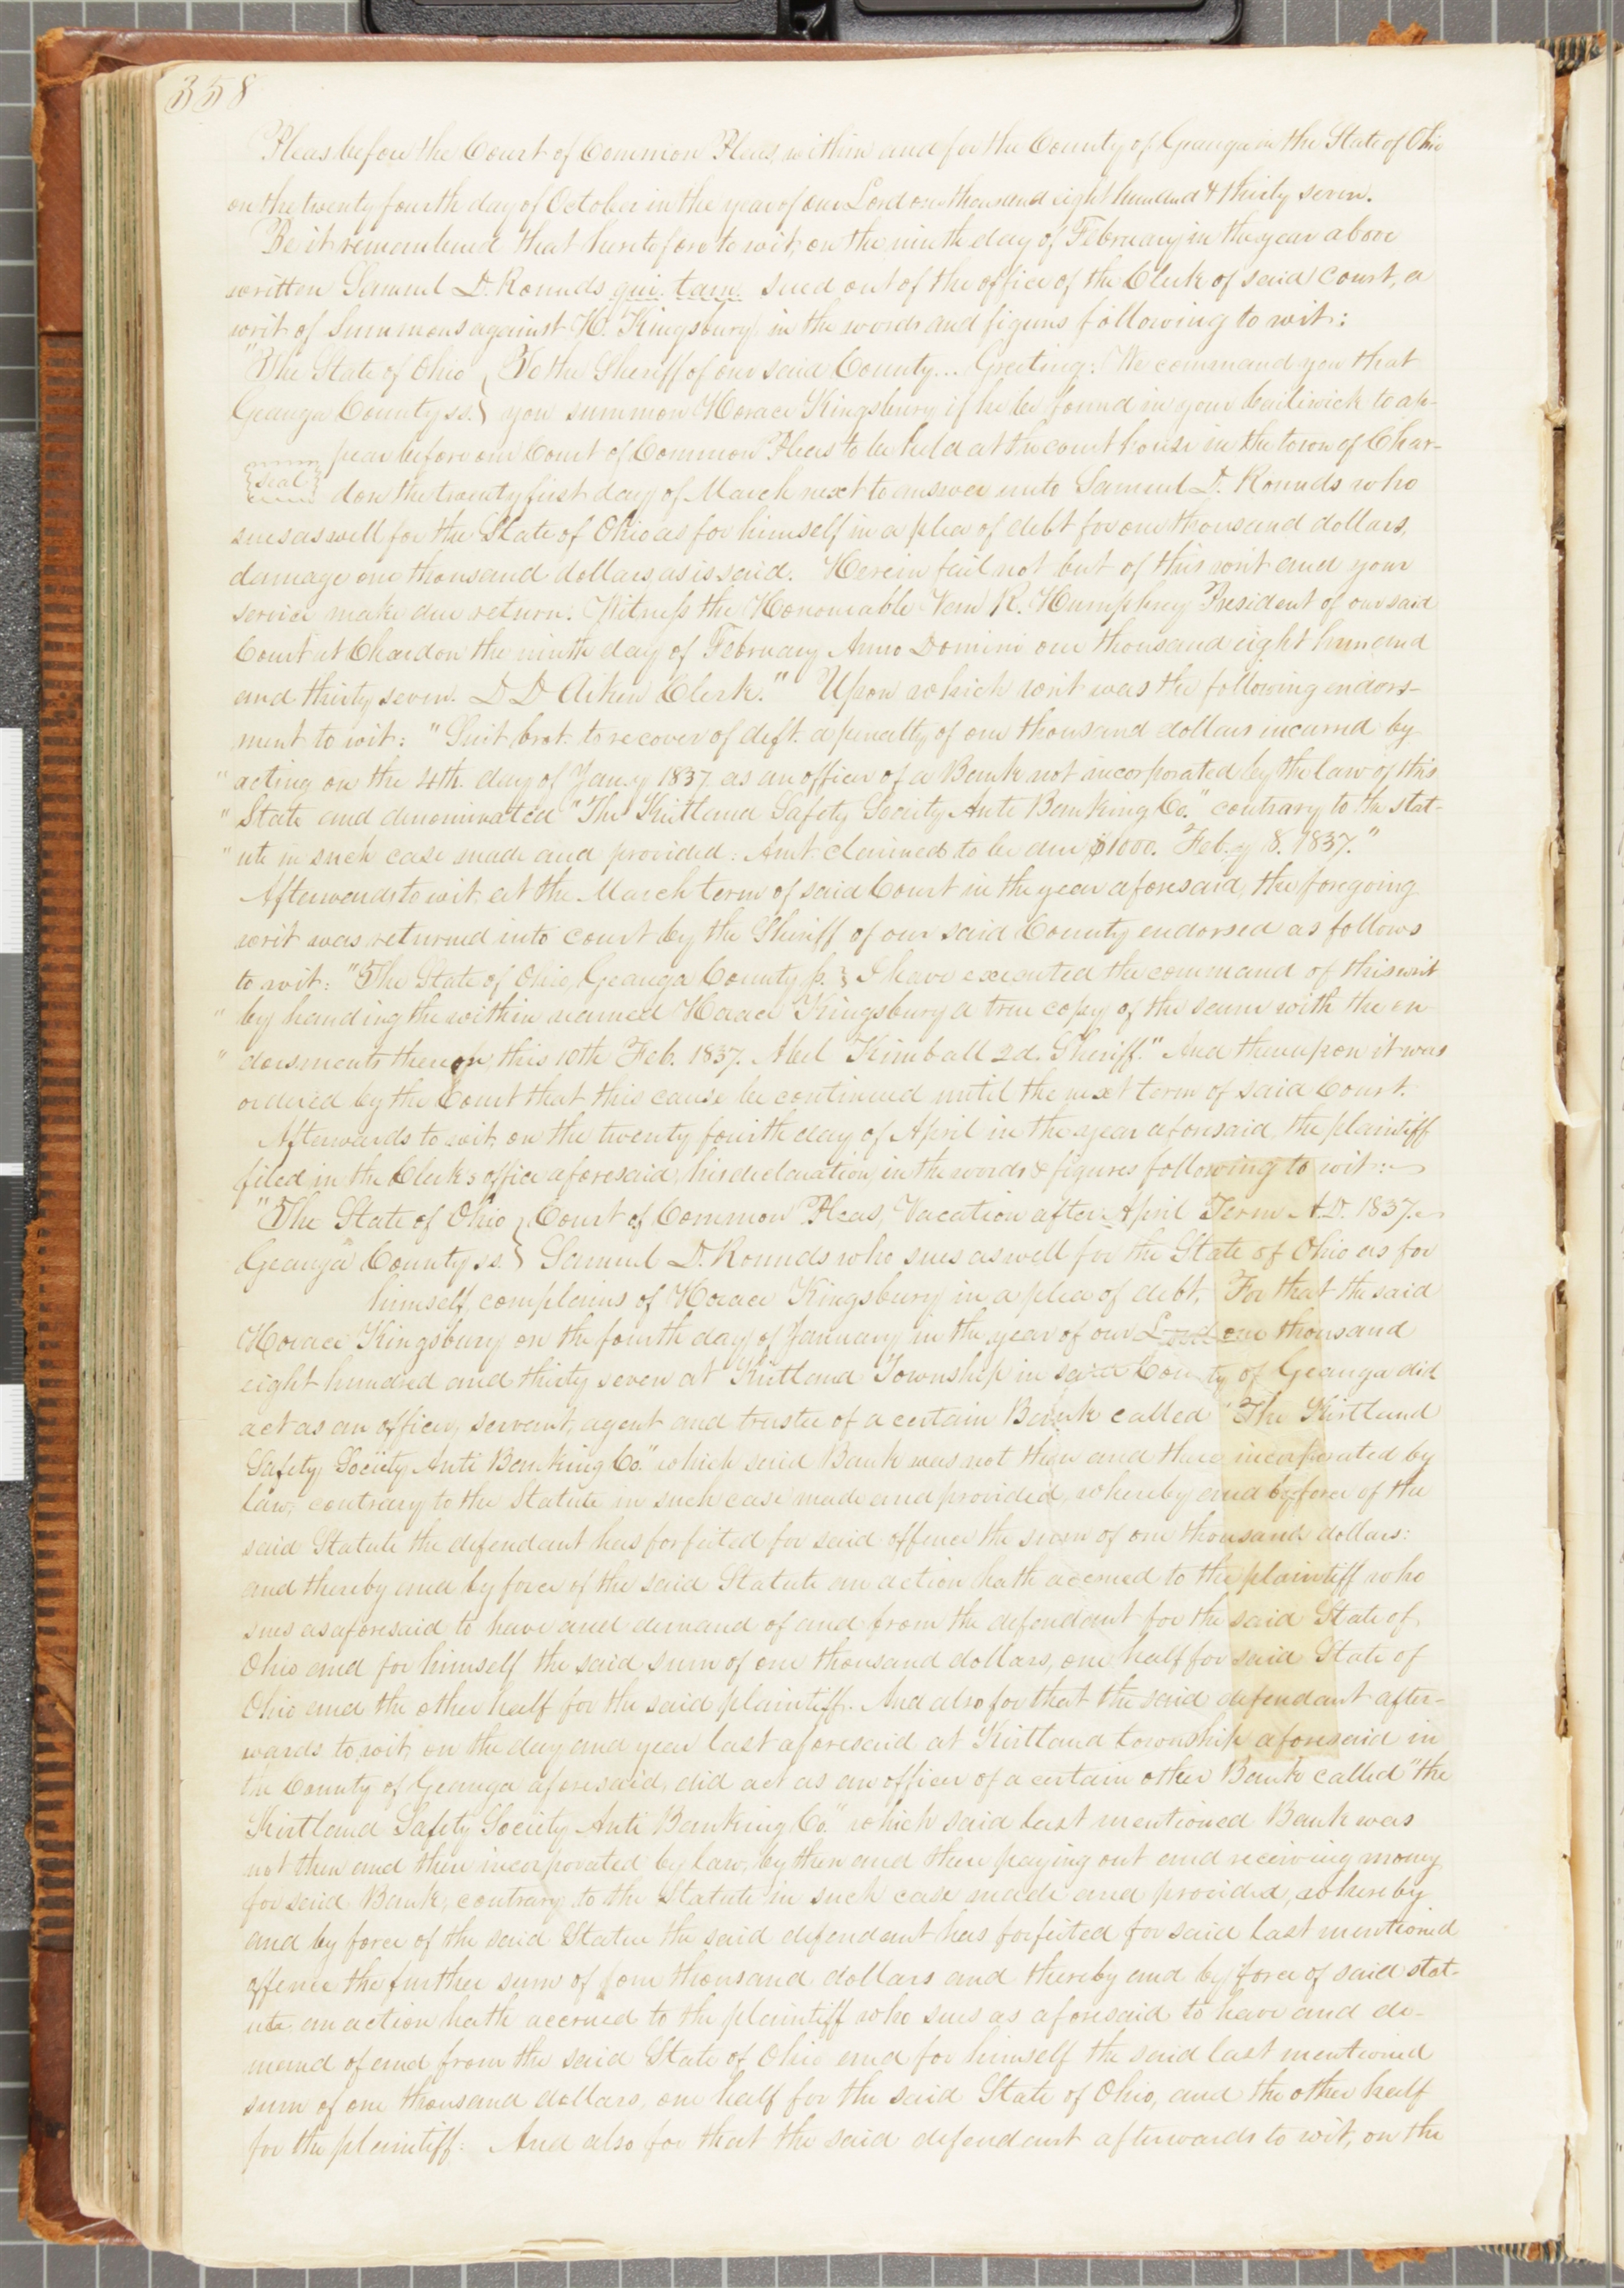 358
Pleas before the Court of Common Pleas, within and for the County of Geauga in the State of Ohio
on the twenty fourth day of October in the year of our Lord one thousand eight hundred & thirty seven.
Be it remembered that heretofore to wit, on the ninth day of February in the year above
written Samuel D. Rounds qui. tam. sued out of the office of the Clerk of said Court, a
writ of Summons against H. Kingsbury in the words and figures following to wit:
"The State of Ohio } To the Sheriff of our said County... Greeting: We command you that
Geauga County ss. } you summon Horace Kingsbury if he be found in your bailiwick to ap-
pear before our Court of Common Pleas to be held at the court house in the town of Char-
{seal} don the twenty first day of March next to answer unto Samuel D. Rounds who
sues as well for the State of Ohio as for himself in a plea of debt for one thousand dollars,
damage one thousand dollars as is said. Herein fail not but of this writ and your
service make due return. Witness the Honourable Van R. Humphrey President of our said
Court at Chardon the ninth day of February Anno Domini one thousand eight hundred
and thirty seven. D D Aiken Clerk." Upon which writ was the following endors-
ment to wit: "Suit brot. to recover of deft. a penalty of one thousand dollars incurred by
" acting on the 4th. day of Jan.y 1837 as an officer of a Bank not incorporated by the law of this
" State and denominated "The Kirtland Safety Society Anti Banking Co." contrary to the stat-
" ute in such case made and provided. Amt. claimed to be due $1000. Feb.y 8. 1837."
Afterwards to wit: at the March term of said Court in the year aforesaid, the foregoing
writ was returned into court by the Sheriff of our said County endorsed as follows
to wit: "The State of Ohio, Geauga County ss. } I have executed the command of this writ
" by handing the within named Horace Kingsbury a true copy of the same with the en
" dorsments thereon, this 10th Feb. 1837. Abel Kimball 2d. Sheriff." And thereupon it was
ordered by the Court that this cause be continued until the next term of said Court.
Afterwards to wit, on the twenty fourth day of April in the year aforesaid, the plaintiff
filed in the Clerks office aforesaid, his declaration, in the words & figures following to wit:
"The State of Ohio } Court of Common Pleas, Vacation after April Term A.D. 1837.
Geauga County ss. } Samuel D. Rounds who sues as well for the State of Ohio as for
himself, complains of Horace Kingsbury in a plea of debt. For that the said
Horace Kingsbury on the fourth day of January in the year of our Lord one thousand
eight hundred and thirty seven at Kirtland Township in said County of Geauga did
act as an officer, servant, agent and trustee of a certain Bank called "The Kirtland
Safety Society Anti Banking Co." which said Bank was not then and there incorporated by
law, contrary to the Statute in such case made and provided, whereby and by force of the
said Statute the defendant has forfeited for said offence the sum of one thousand dollars:
and thereby and by force of the said Statute an action hath accrued to the plaintiff who
sues as aforesaid to have and demand of and from the defendant for the said State of
Ohio and for himself the said sum of one thousand dollars, one half for said State of
Ohio and the other half for the said plaintiff. And also for that the said defendant after-
wards to wit, on the day and year last aforesaid at Kirtland township aforesaid in
the County of Geauga aforesaid, did act as an officer of a certain other Bank called "the
Kirtland Safety Society Anti Banking Co." which said last mentioned Bank was
not then and there incorporated by law, by then and there paying out and receiving money
for said Bank, contrary to the Statute in such case made and provided, whereby
and by force of the said Statue the said defendant has forfeited for said last mentioned
offence the further sum of one thousand dollars and thereby and by force of said stat-
ute an action hath accrued to the plaintiff who sues as aforesaid to have and de-
mand of and from the said State of Ohio and for himself the said last mentioned
sum of one thousand dollars, one half for the said State of Ohio, and the other half
for the plaintiff: And also for that the said defendant afterwards to wit, on the